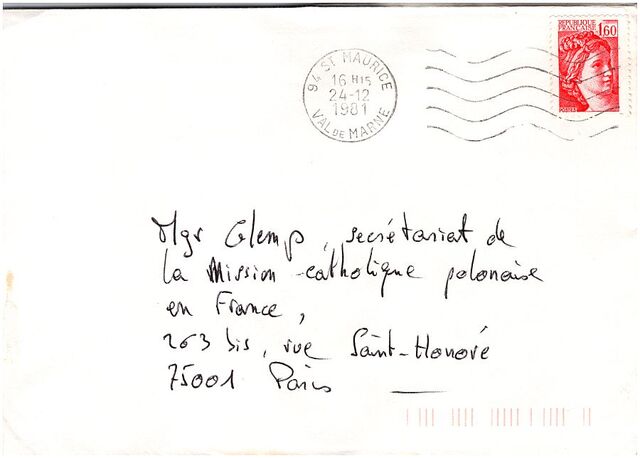 RÉPUBLIQUE
FRANÇAISE
1,60
POSTES
94 ST MAURICE
16 H15
24-12
1981
VAL DE MARNE
Mgr Glemp, secrétariat de
la Mission catholique polonaise
en France,
263 bis, rue Saint-Honoré
75001 Paris